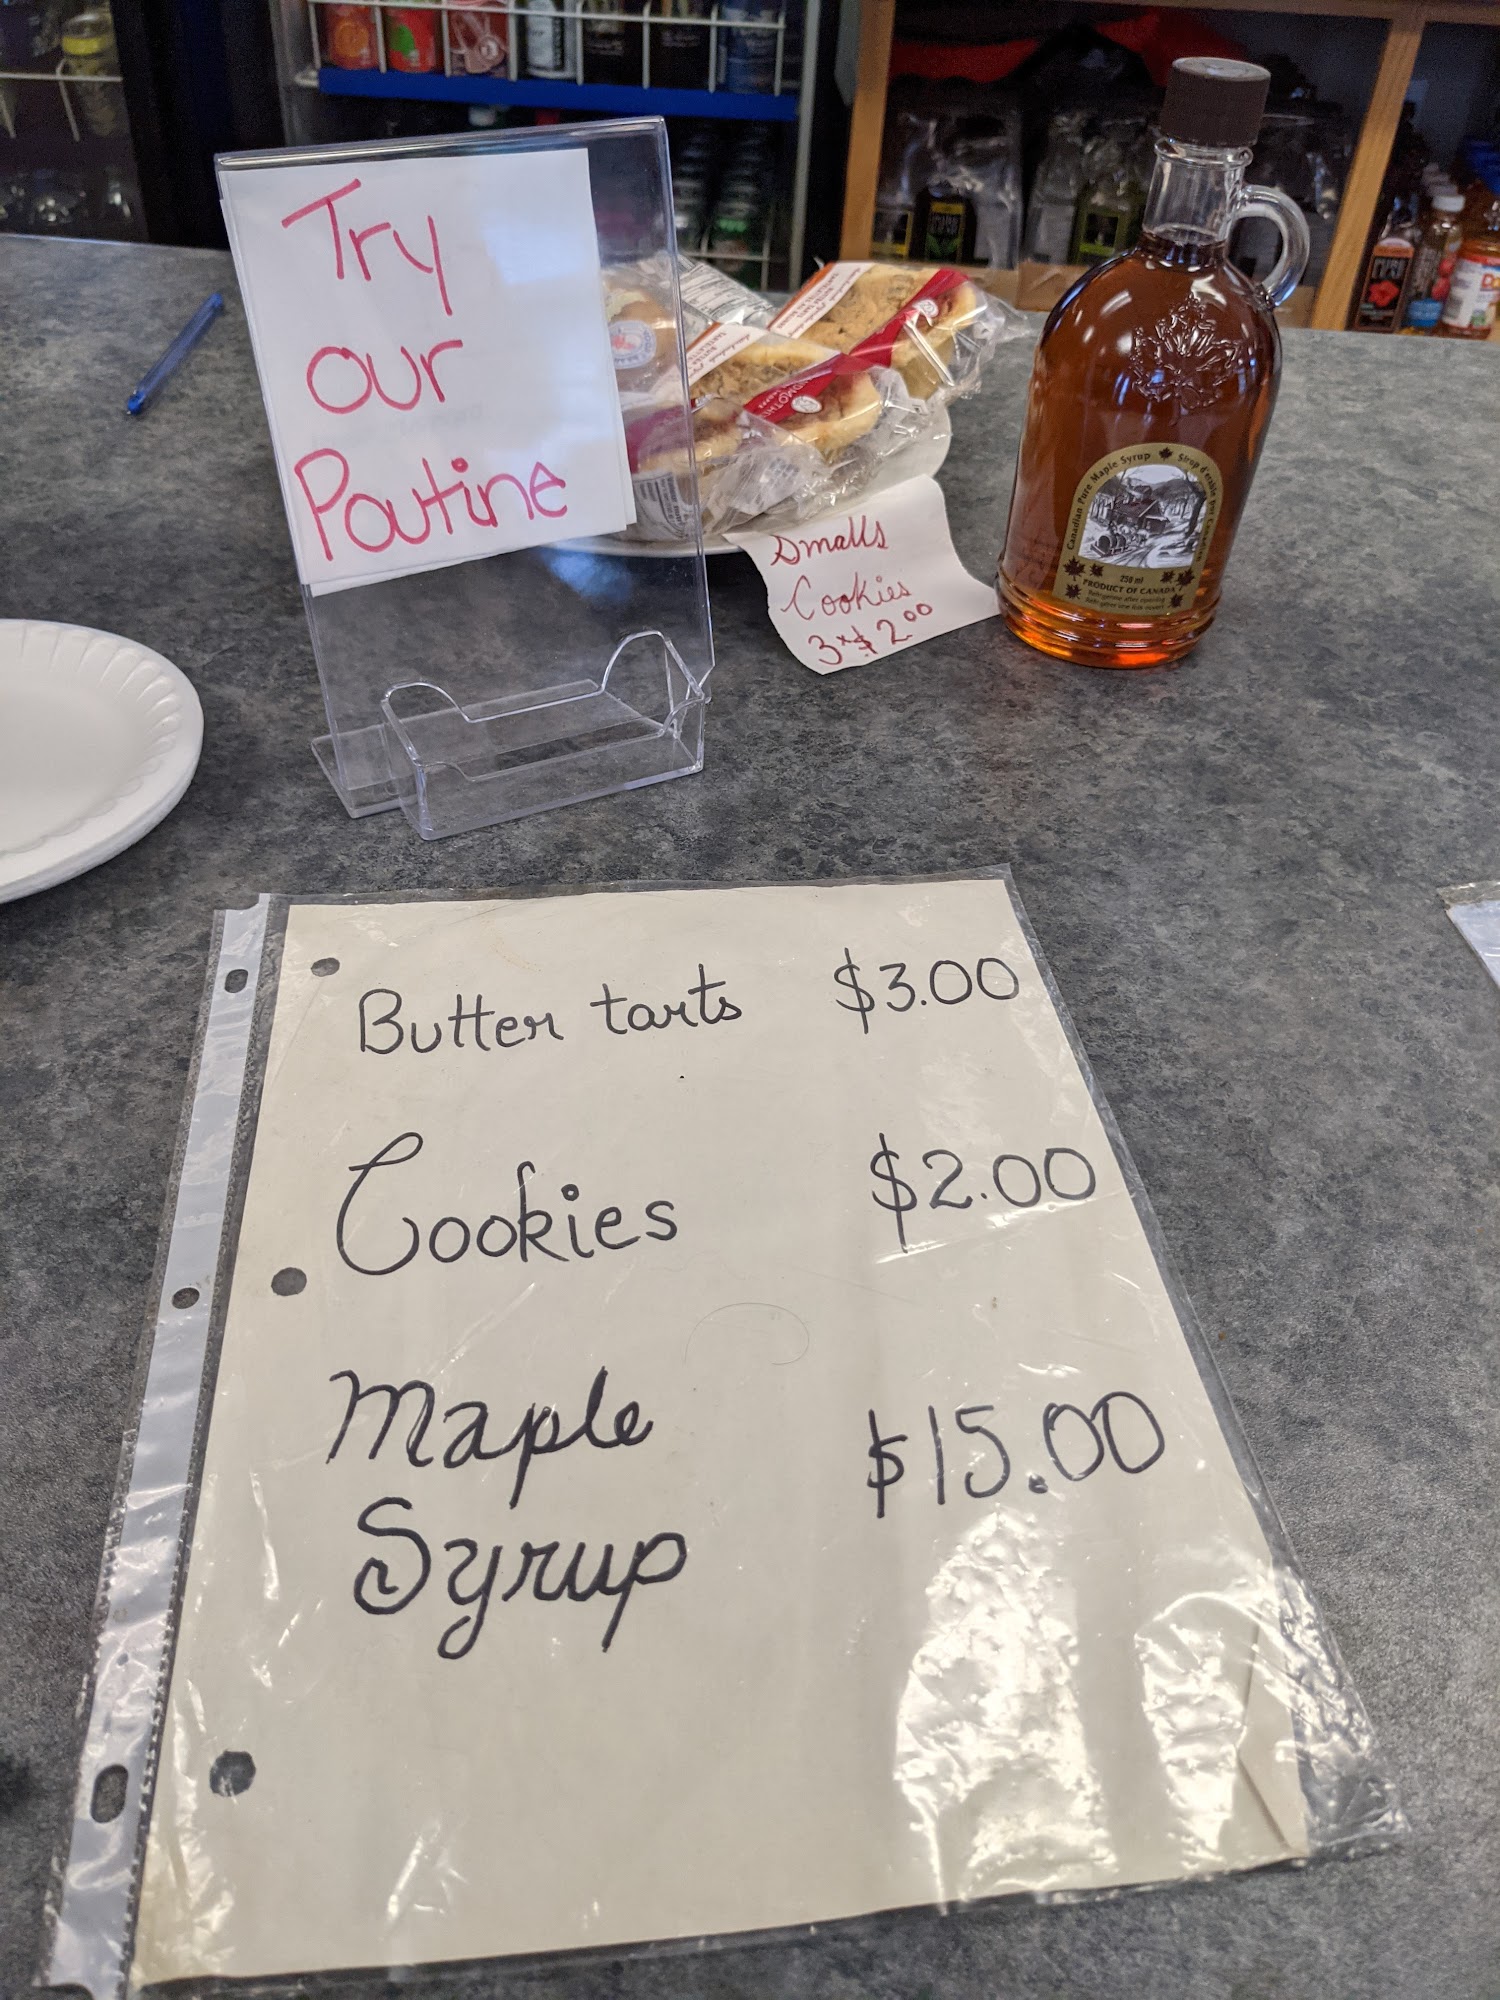 Try
our
Poutine
Smalls
Cookies
3x$2.00
Canadian Pure Maple Syrup
Sirop d'érable pur Canadien
250 ml
PRODUCT OF CANADA
Butter tarts $3.00
Cookies $2.00
Maple
Syrup $15.00